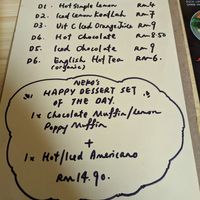 D1. Hot Simple Lemon RM4
D2. Iced Lemon Konlah RM7
D3. Vit C Iced Orange Juice RM9
D4. Hot Chocolate RM8.50
D5. Iced Chocolate RM9
D6. English Hot Tea RM6.
(organic)
NEKO's
HAPPY DESSERT SET
OF THE DAY.
1x Chocolate Muffin/Lemon
Poppy Muffin
+
1x Hot/Iced Americano
RM14.90.